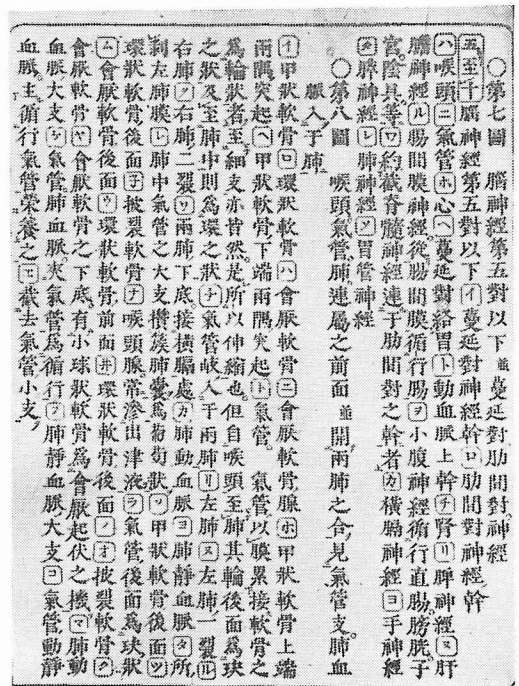 ○第七圖 腦神經第五對以下並蔓延對肋間對神經
五至十腦神經第五對以下イ蔓延對神經幹ロ肋間對神經幹
ハ喉頭ニ氣管ホ心ヘ蔓延對絡胃ト動血脈上幹チ腎リ脾神經ヌ肝
膽神經ル腸間膜神經從腸間膜循行腸ヲ小腹神經循行直腸膀胱子
宮陰具等ワ約截脊髓神經連于肋間對之幹者カ橫膈神經ヨ手神經
タ脾神經レ肺神經ソ胃管神經
○第八圖 喉頭氣管肺連屬之前面並開兩肺之合見氣管支肺血
脈入于肺
イ甲狀軟骨ロ環狀軟骨ハ會厭軟骨ニ會厭軟骨腺ホ甲狀軟骨上端
兩隅突起ヘ甲狀軟骨下端兩隅突起ト氣管 氣管以膜累接軟骨之
爲輪狀者至細支亦皆然是所以伸縮也但自喉頭至肺其輪後面爲玦
之狀及至肺中則爲環之狀チ氣管岐入于兩肺リ左肺ヌ左肺一裂ル
右肺ヲ右肺二裂ワ兩肺下底接橫膈處カ肺動血脈ヨ肺靜血脈タ所
剥左肺膜レ肺中氣管之大支攢簇肺囊爲葡萄狀ソ甲狀軟骨後面ツ
環狀軟骨後面ネ披裂軟骨ナ喉頭腺常滲出津液ラ氣管後面爲玦狀
ム會厭軟骨後面ウ環狀軟骨前面井環狀軟骨後面ノオ披裂軟骨ク
會厭軟骨ヤ會厭軟骨之下底有小球狀軟骨爲會厭起伏之機マ肺動
血脈大支ケ氣管肺血脈夾氣管爲循行フ肺靜血脈大支コ氣管動靜
血脈主循行氣管榮養之エ截去氣管小支